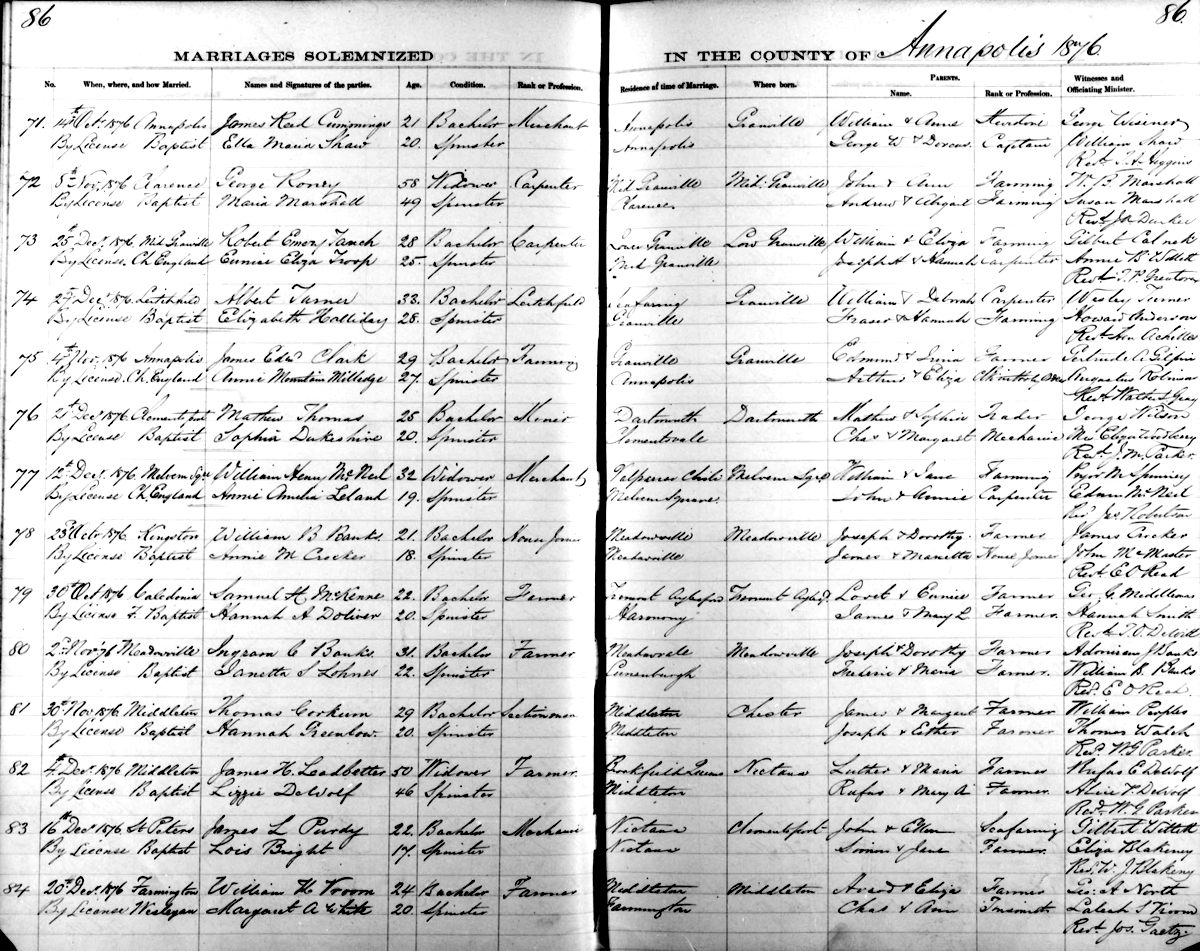 86
86
MARRIAGES SOLEMNIZED
IN THE COUNTY OF Annapolis 1876
No. When, where, and how Married. Names and Signatures of the parties. Age. Condition. Rank or Profession. Residence at time of Marriage. Where born. PARENTS. Name. Rank or Profession. Witnesses and Officiating Minister.
71. 4th Oct. 1876 Annapolis James Reid Cummings 21 Bachelor Merchant Annapolis Granville William & Anne George Wisener
By License Baptist Ella Maria Shaw 20. Spinster Annapolis George W & Dorcas Captain William Shaw
Revd. T. A. Higgins
72 8th Nov. 1876 Clarence George Roney 58 Widower Carpenter Mid Granville Mid. Granville John & Ann Farming W. B. Marshall
By License Baptist Maria Marshall 49 Spinster Clarence Andrew & Abigail Farming Susan Marshall
Revd.
73 25th Decr. 1876. Mid Granville Robert Emory 28 Bachelor Carpenter Lower Granville Low Granville William & Eliza Farming Gilbert Calnek
By License. Ch England Eunice Eliza Troop 25 Spinster Mid Granville Joseph H & Hannah Carpenter Annie
Revd.
74 Decr. 1876 Leitchfield Albert Turner 33. Bachelor Leitchfield Seafaring Granville William & Deborah Carpenter Wesley Turner
By License Baptist Elizabeth Halliday 28. Spinster Granville Fraser & Hannah Farming Howard Anderson
Revd. Achilles
75 Nov. 1876 Annapolis James Edwd Clark 29 Bachelor Farming Granville Granville Edmund & Farmer Gertrude A. Gilpin
By License. Ch. England Annie Mountain Milledge 27. Spinster Annapolis Arthur & Eliza Augustus Robinson
Revd.
76 Decr. 1876. Mathew Thomas 25 Bachelor Miner Dartmouth Dartmouth Mathew & Sophia Trader George Wilson
By License Baptist Sophia Dukeshire 20. Spinster Clementsvale Chas & Margaret Mechanic Mrs Eliza Woodbery
Revd. J. M. Parker
77 12th Decr. 1876. Melvern Sqre William Henry McNeil 32 Widower Merchant Melvern Sqre William & Jane Farming Spinney
By License Ch England Annie Amelia Leland 19. Spinster Melvern Square John & Annie Carpenter Edwin McNeil
Revd. Jas. Robertson
78 23rd Octr. 1876 Kingston William B Banks 21. Bachelor House Joiner Meadowville Meadowville Joseph & Dorothy Farmer James Crocker
By License Baptist Annie M Crocker 18. Spinster Meadowville James & Manetta House Joiner John McMaster
Revd. E O Read
79 30th Oct 1876 Caledonia Samuel H. McKenne 22. Bachelor Farmer Tremont Aylesford Tremont Aylesfd. & Eunice Farmer Geo. G. Middlemas
By License F. Baptist Hannah A Doliver 20. Spinster Harmony James & Mary L Farmer. Hannah Smith
Revd.
80 2nd Novr 76 Meadowville Ingram C Banks. 31. Bachelor Farmer Meadowvale Meadowville Joseph & Dorothy Farmer Adoniram J Banks
By License Baptist Janetta S Lohnes 22. Spinster Lunenburgh Frederic & Maria Farmer. William B. Banks
Revd. E O Read
81 30th Nov 1876. Middleton Thomas Corkum 29 Bachelor Sectionman Middleton Chester James & Margaret Farmer William Peoples
By License Baptist Hannah Greenlow. 20. Spinster Middleton Joseph & Esther Farmer Thomas Walsh
Revd. W. G. Parker
82 4th Decr. 1876 Middleton James H. Leadbetter 50 Widower Farmer. Brookfield Queens Nictaux Luther & Maria Farmer Rufus E DeWolf
By License Baptist Lizzie DeWolf 46 Spinster Middleton Rufus & Mary A Farmer. Alice P DeWolf
Revd. W. G. Parker
83 16th Decr 1876 St Peters James L Purdy 22. Bachelor Mechanic Nictaux Clementsport John & Ellen Seafaring Gilbert Willett
By License Baptist Lois Bright 17. Spinster Nictaux Simon & Jane Farmer. Eliza Blakeney
Revd. W. J. Blakeny
84 20th Decr. 1876 Farmington William H Vroom 24 Bachelor Farmer Middleton Middleton & Eliza Farmer Geo. A North
By License Wesleyan Margaret A White 20. Spinster Farmington Chas & Ann Tinsmith. Vroom
Revd. Jos. Gaetz.